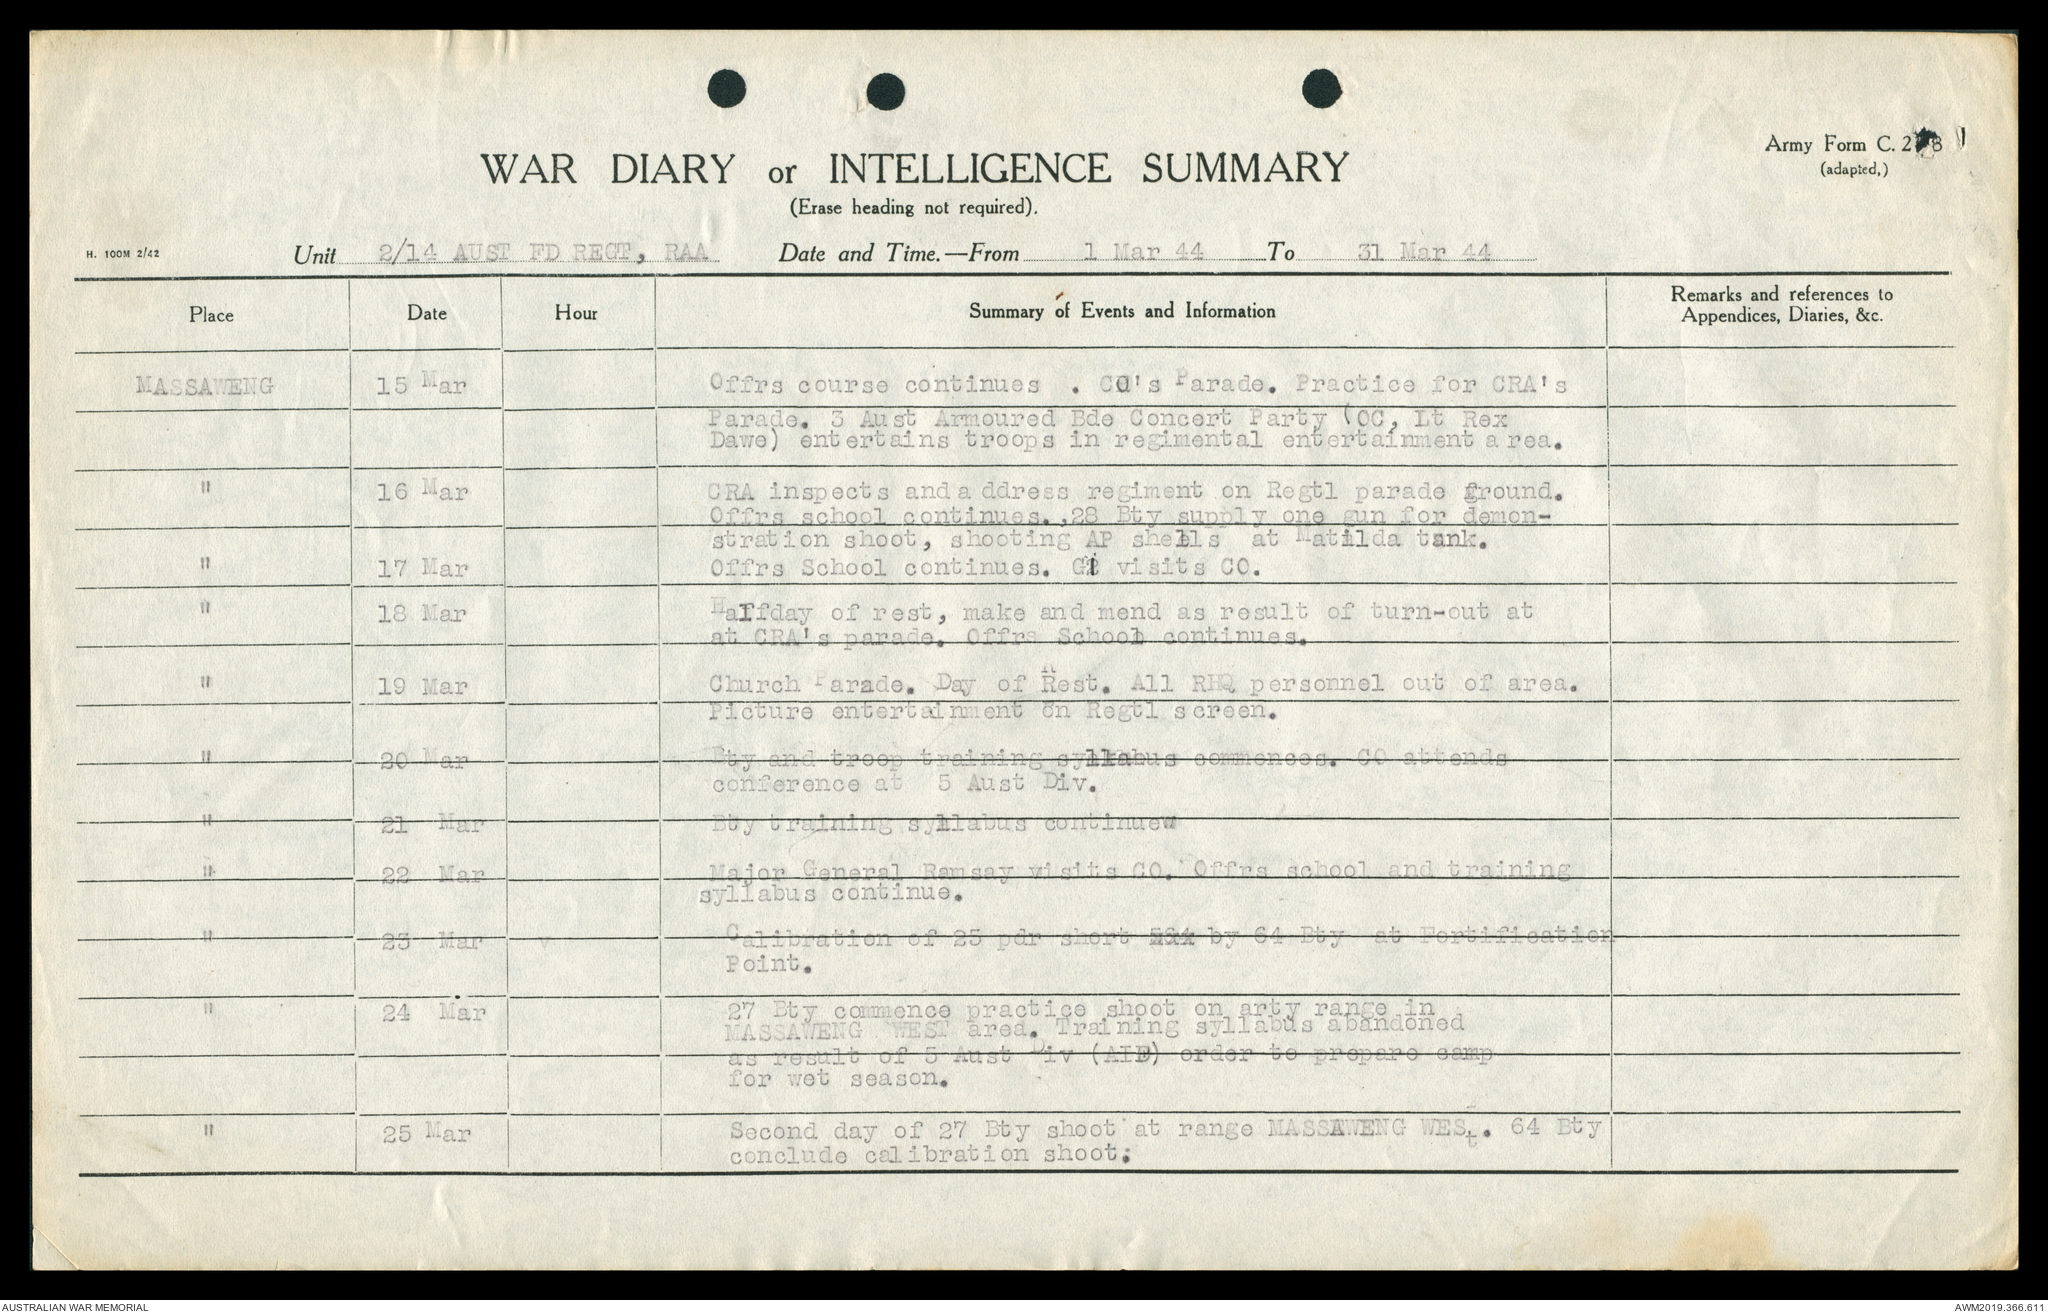 Army Form C. 2118
(adapted,)
WAR DIARY or INTELLIGENCE SUMMARY
(Erase heading not required).
H. 100M 2/42
Unit 2/14 AUST FD REGT, RAA Date and Time.—From 1 Mar 44 To 31 Mar 44
Place Date Hour Summary of Events and Information Remarks and references to
Appendices, Diaries, &c.
MASSAWENG 15 Mar Offrs course continues . CO's Parade. Practice for CRA's
Parade. 3 Aust Armoured Bde Concert Party (OC, Lt Rex
Dawe) entertains troops in regimental entertainment area.
" 16 Mar CRA inspects and a ddress regiment on Regtl parade ground.
Offrs school continues.,28 Bty supply one gun for demon-
stration shoot, shooting AP shells at Matilda tank.
" 17 Mar Offrs School continues. G1 visits CO.
" 18 Mar Halfday of rest, make and mend as result of turn-out at
at CRA's parade. Offrs School continues.
" 19 Mar Church Parade. Day of Rest. All RHQ personnel out of area.
Picture entertainment on Regtl screen.
" 20 Mar Bty and troop training syllabus commences. CO attends
conference at 5 Aust Div.
" 21 Mar Bty training syllabus continuew
" 22 Mar Major General Ramsay visits CO. Offrs school and training
syllabus continue.
" 23 Mar Calibration of 25 pdr short by 64 Bty at Fortification
Point.
" 24 Mar 27 Bty commence practice shoot on arty range in
MASSAWENG WEST area. Training syllabus abandoned
as result of 5 Aust Div (AIF) order to prepare camp
for wet season.
" 25 Mar Second day of 27 Bty shoot at range MASSAWENG WESt. 64 Bty
conclude calibration shoot.
AUSTRALIAN WAR MEMORIAL AWM2019.366.611